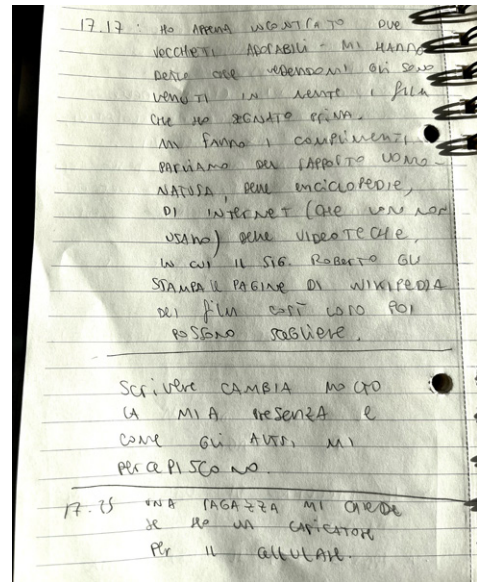 17.17: HO APPENA INCONTRATO DUE
VECCHIETTI ADORABILI - MI HANNO
DETTO CHE VEDENDOMI GLI SONO
VENUTI IN MENTE I FILM
CHE HO SEGNATO PRIMA.
MI FANNO I COMPLIMENTI,
PARLIAMO DEL RAPPORTO UOMO-
NATURA, DELLE ENCICLOPEDIE,
DI INTERNET (CHE LORO NON
USANO) DELLE VIDEOTECHE,
IN CUI IL SIG. ROBERTO GLI
STAMPA LE PAGINE DI WIKIPEDIA
DEI FILM COSÌ LORO POI
POSSONO SCEGLIERE.
SCRIVERE CAMBIA MOLTO
LA MIA PRESENZA E
COME GLI ALTRI MI
PERCEPISCONO.
17.25 UNA RAGAZZA MI CHIEDE
SE HO UN CARICATORE
PER IL CELLULARE.